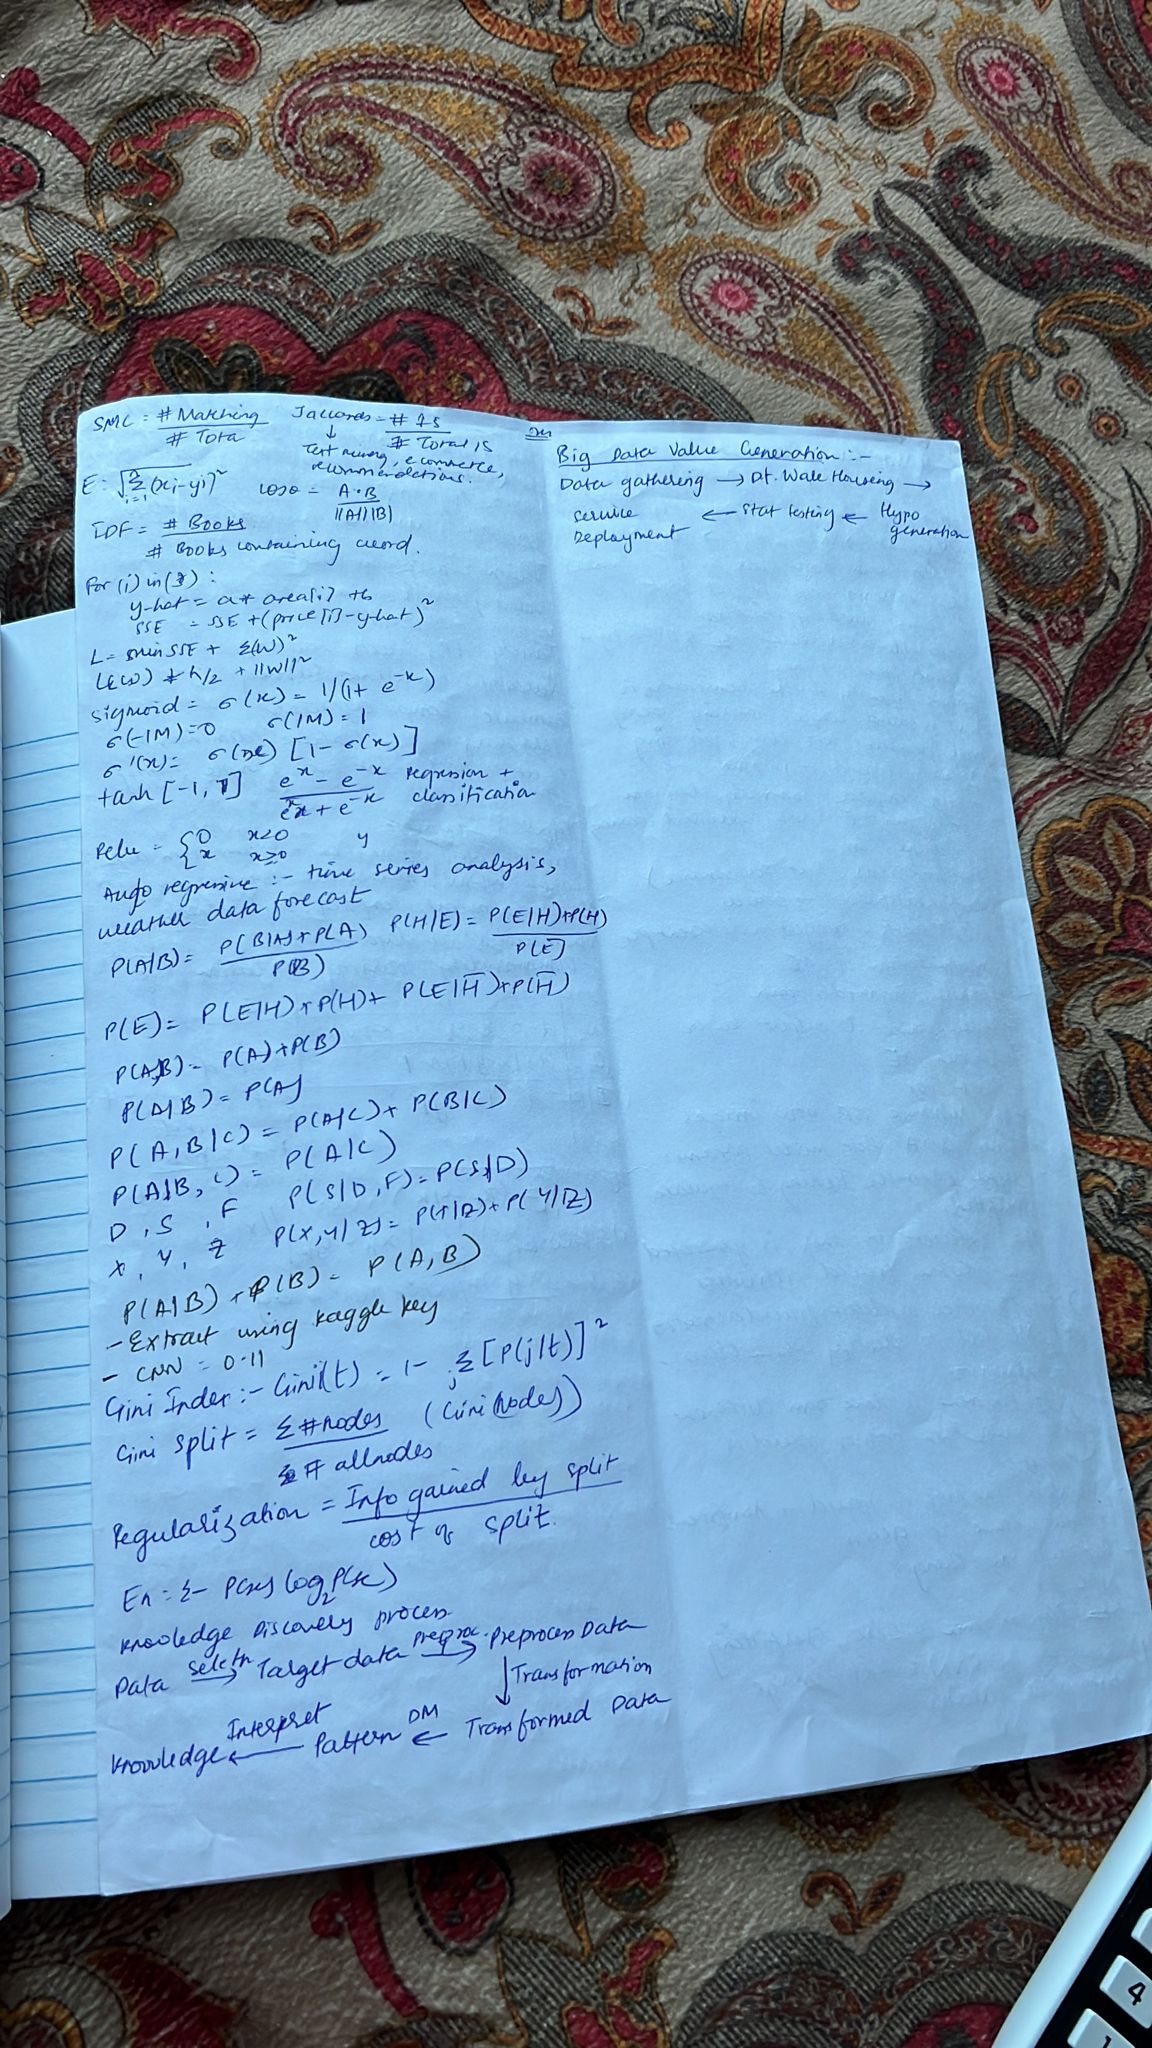 SMC = # Matching / # Tota
Jaccores = # 1s / # Total 1s
↓
Text mining, e commerce,
recommendations.
E = √Σ(xi-yi)²
i=1
cosθ = A·B / ||A|| ||B||
IDF = # Books / # Books containing word.
For (i) in (3):
y-hat = a* area[i] +b
SSE = SSE + (price[i]-y-hat)²
L = min SSE + Σ(W)²
L(w) * λ/2 + ||W||²
sigmoid = σ(x) = 1/(1+ e^-x)
σ(-1M)=0 σ(1M)=1
σ'(x)= σ(x) [1- σ(x)]
tanh [-1, 1] e^x - e^-x / e^x + e^-x regression + classification
Relu = { 0 x<0 y
x x≥0
Auto regressive :- time series analysis,
weather data forecast
P(A|B)= P(B|A)*P(A) / P(B) P(H|E)= P(E|H)*P(H) / P(E)
P(E)= P(E|H)*P(H)+ P(E|H̅)*P(H̅)
P(A,B)= P(A)*P(B)
P(A|B)= P(A)
P(A,B|C) = P(A|C)* P(B|C)
P(A|B, C)= P(A|C)
D, S, F P(S|D,F)=P(S|D)
X, Y, Z P(X,Y|Z)= P(X|Z)*P(Y|Z)
P(A|B) * P(B)= P(A,B)
- Extract using kaggle key
- CNN = 0.11
Gini Index :- Gini(t) = 1- Σ [P(j|t)]²
j
Gini split = Σ #nodes / Σ # allnodes (Gini(nodes))
Regularization = Info gained by split / cost of split.
En = Σ- P(x) log₂P(x)
Knowledge Discovery process
Data → Selectn Target data → Preproc. Preprocess Data
↓ Transformation
Knowledge ← Interpret Pattern ← DM Transformed Data
Big Data Value Generation :-
Data gathering → Dt. Ware Housing →
Service Deployment ← Stat testing ← Hypo generation